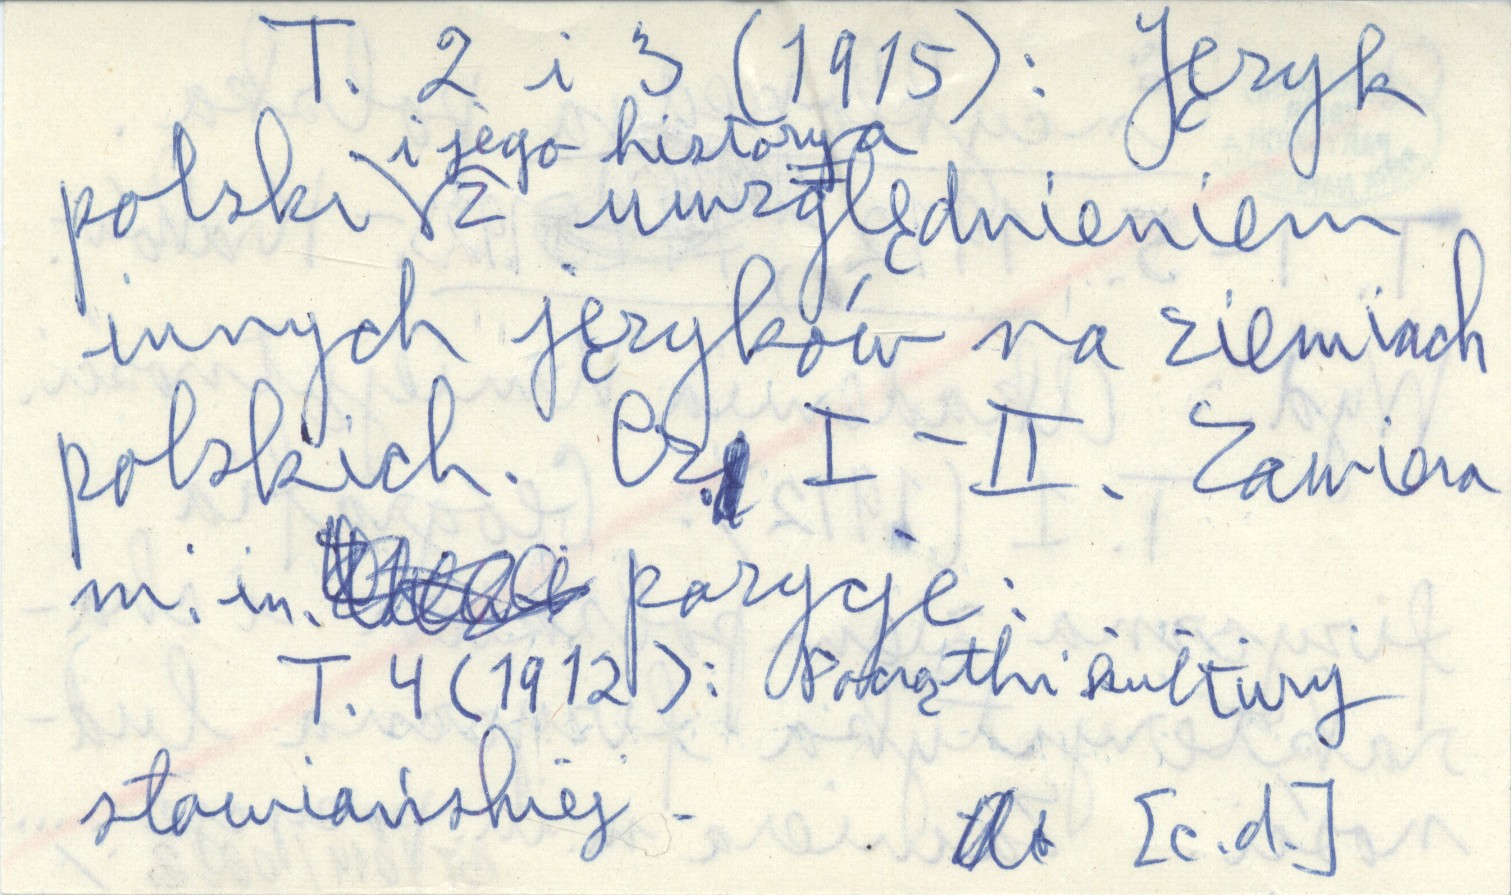 T. 2 i 3 (1915): Język
i jego historya
polski z uwzględnieniem
innych języków na ziemiach
polskich. Cz. I - II. Zawiera
m. in. pozycje:
T. 4 (1912): Początki kultury
słowiańskiej. [c.d.]